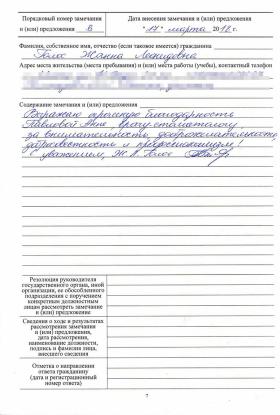 Порядковый номер замечания
и (или) предложения 3
Дата внесения замечания
и (или) предложения
"17" марта 2012 г.
Фамилия, собственное имя, отчество (если таковое имеется) гражданина
Жанна Леонидовна
Адрес места жительства (места пребывания) и (или) места работы (учебы), контактный телефон
Содержание замечания и (или) предложения
Выражаю огромную благодарность
Павловой Анне врачу стоматологу
за внимательность, доброжелательность,
добросовестность и профессионализм!
С уважением, Ж.Л.
Резолюция руководителя
государственного органа, иной
организации, ее обособленного
подразделения с поручением
конкретным должностным
лицам рассмотреть замечание
и (или) предложение
Сведения о ходе и результатах
рассмотрения замечания
и (или) предложения,
дата рассмотрения,
наименование должности,
подпись и фамилия лица,
внесшего сведения
Отметка о направлении
ответа гражданину
(дата и регистрационный
номер ответа)
7